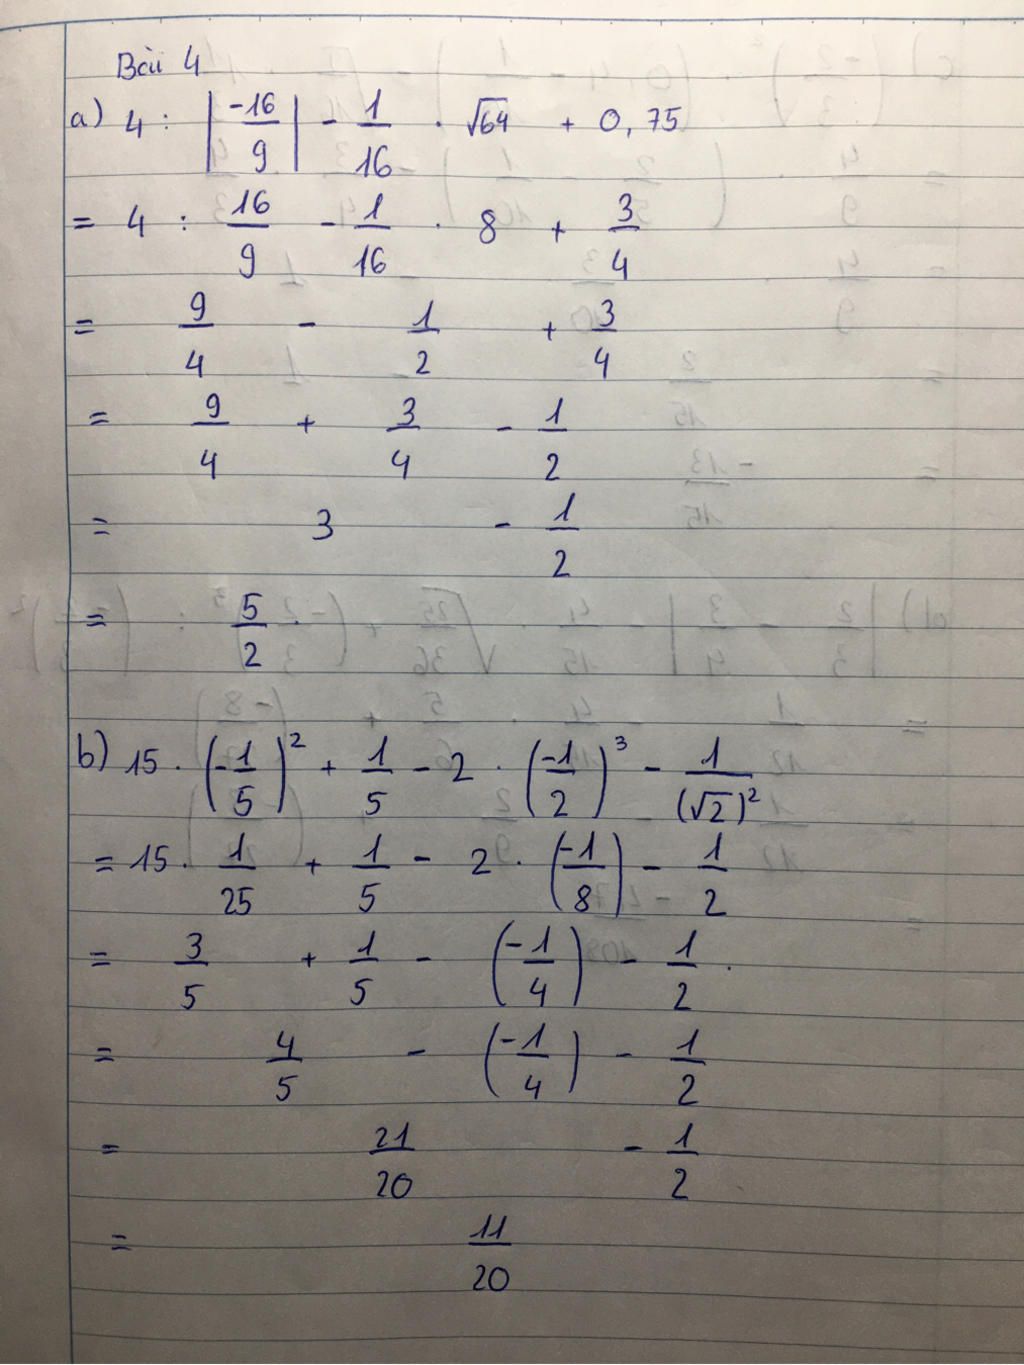 Bài 4
a) 4 : |-16/9| - 1/16 . √64 + 0,75
= 4 : 16/9 - 1/16 . 8 + 3/4
= 9/4 - 1/2 + 3/4
= 9/4 + 3/4 - 1/2
= 3 - 1/2
= 5/2
b) 15 . (-1/5)² + 1/5 - 2 . (-1/2)³ - 1/(√2)²
= 15 . 1/25 + 1/5 - 2 . (-1/8) - 1/2
= 3/5 + 1/5 - (-1/4) - 1/2 .
= 4/5 - (-1/4) - 1/2
= 21/20 - 1/2
= 11/20